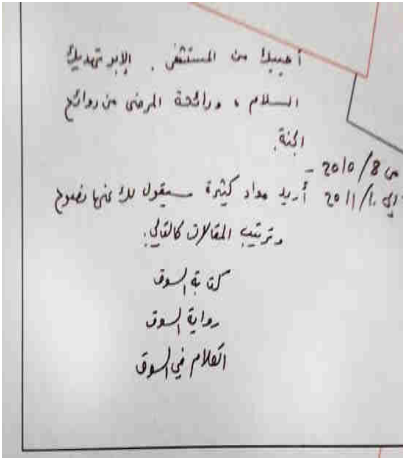 أجيبك من المستشفى. الإبر تهديك
السلام، ورائحة المرضى من روائح
الجنة.
من 2010/8 -
إلى 2011/1 أريد مواد كثيرة سيقول لك عنها
وترتيب المقالات كالتالي:
كتابة السوق
رواية السوق
الكلام في السوق